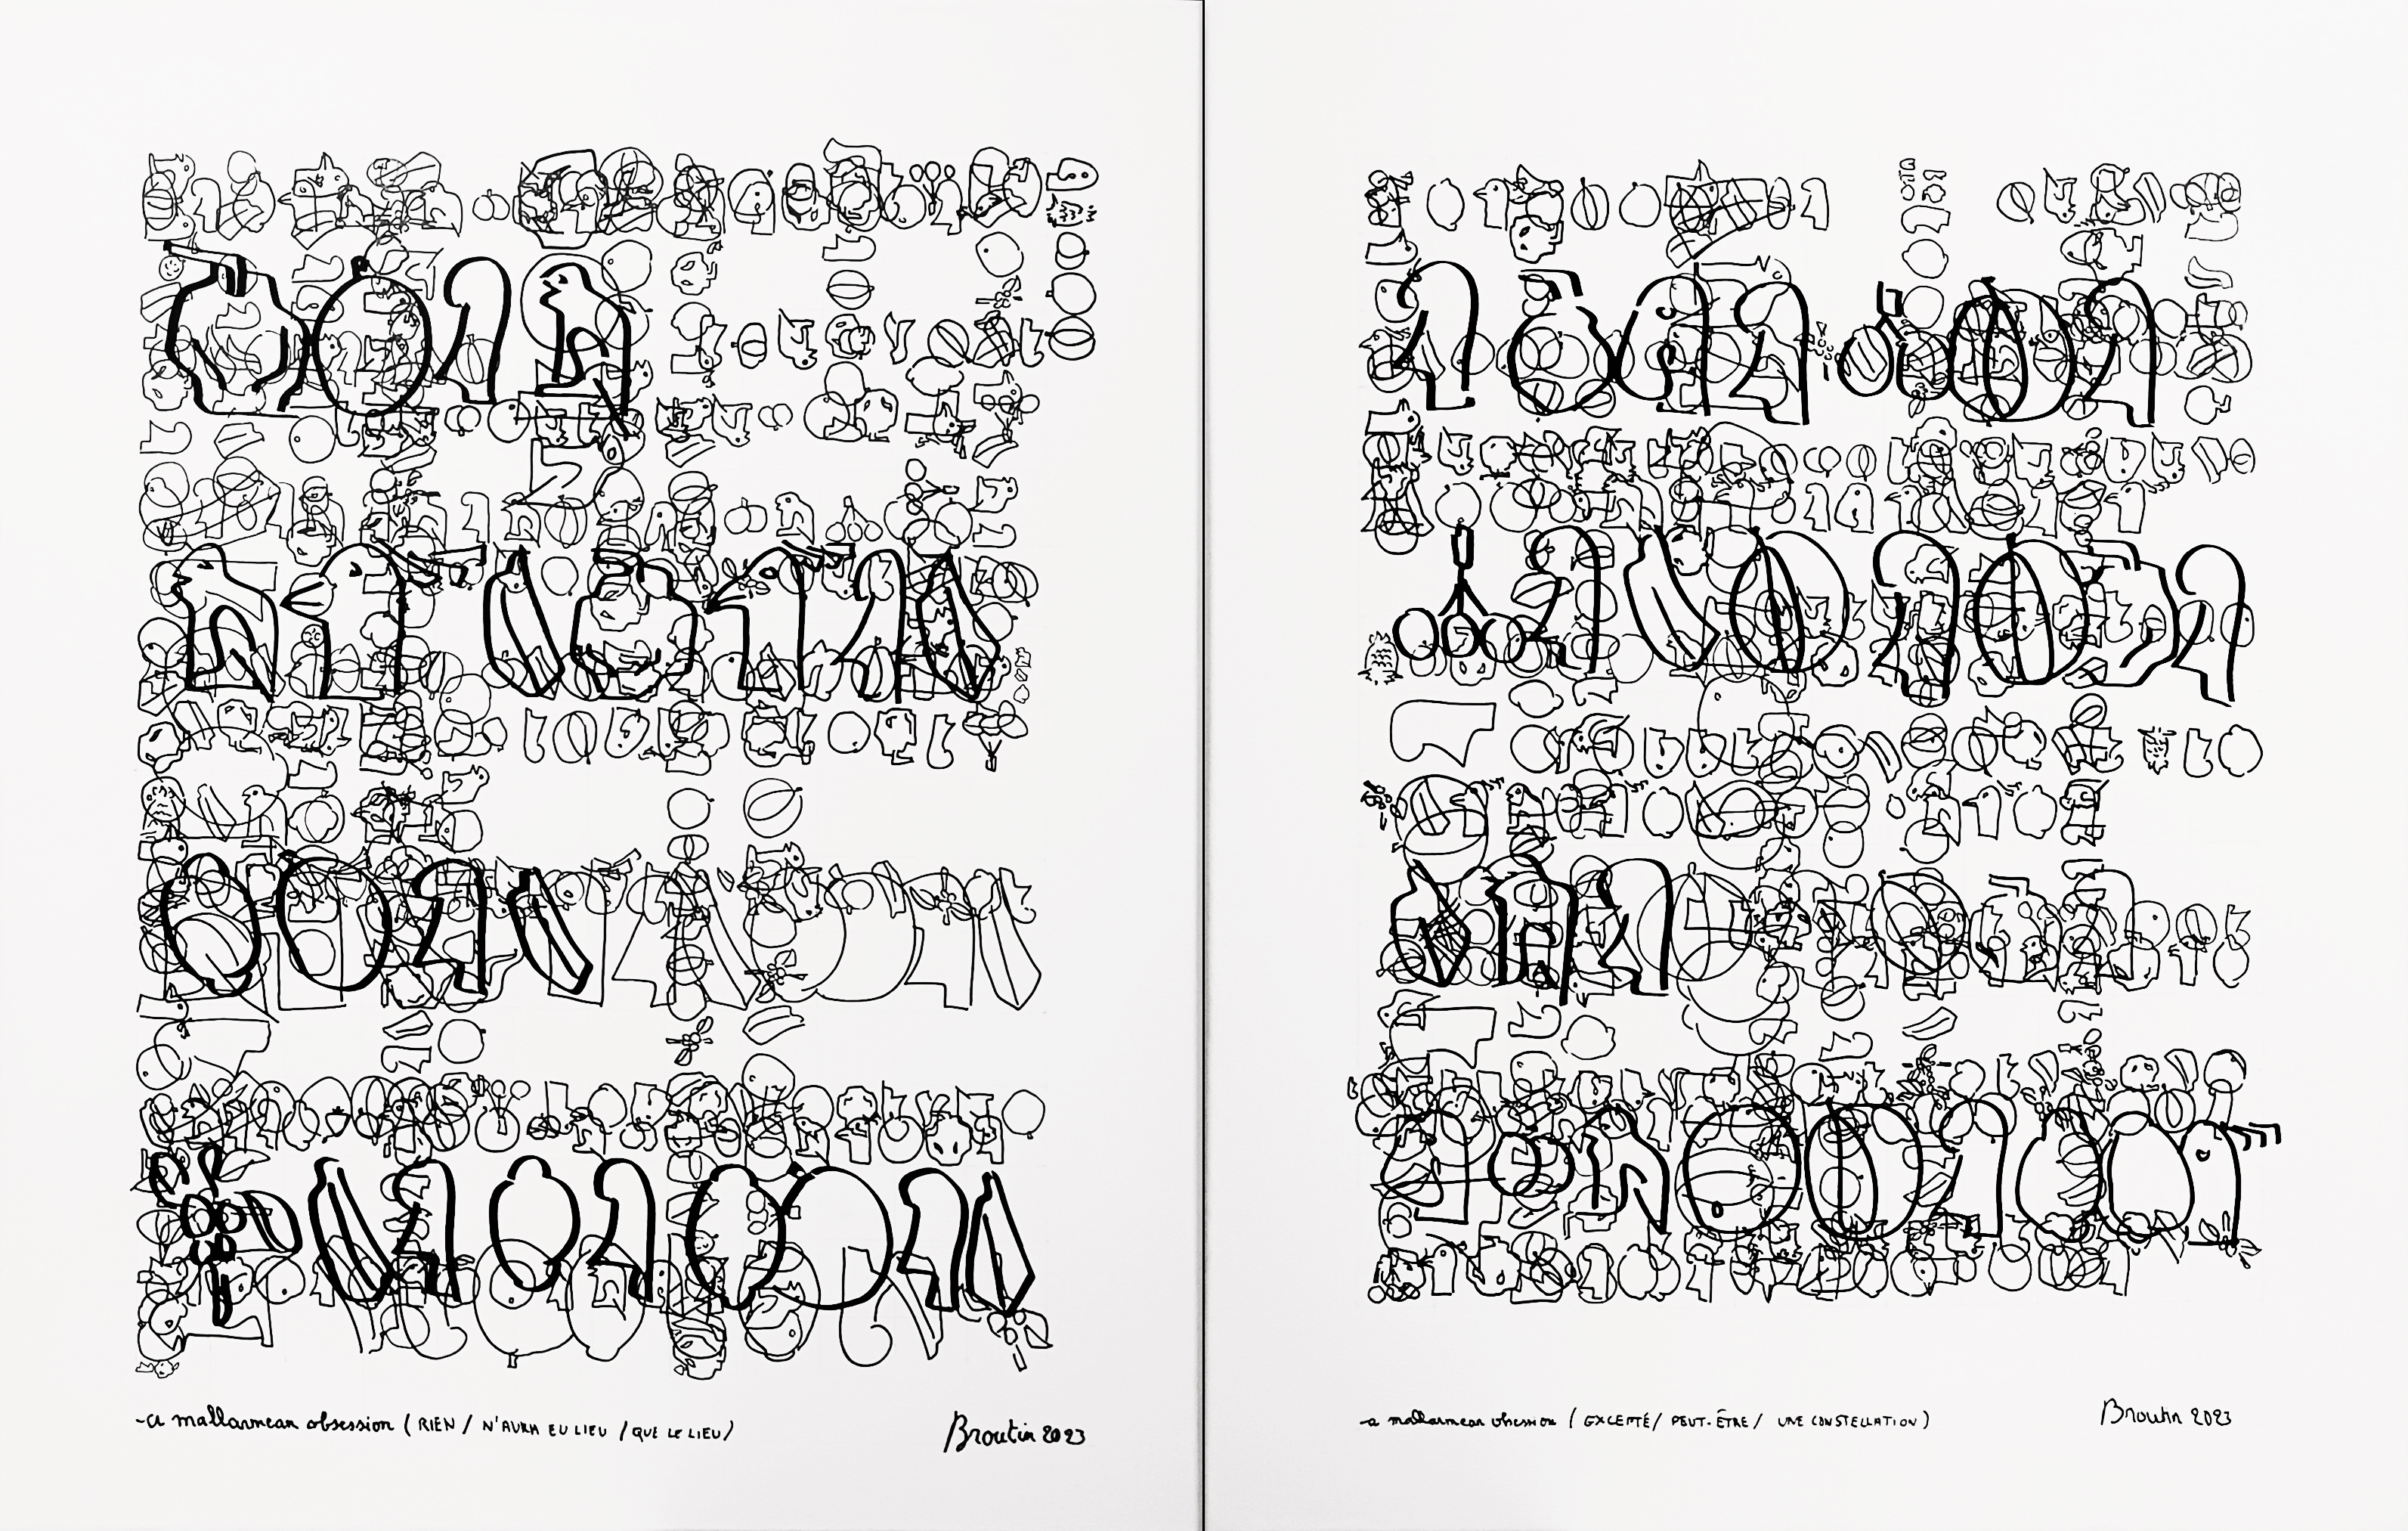 -a mallarmean obsession (RIEN / N'AURA EU LIEU / QUE LE LIEU)
Broutin 2023
-a mallarmean obsession (EXCEPTÉ / PEUT-ÊTRE / UNE CONSTELLATION)
Broutin 2023